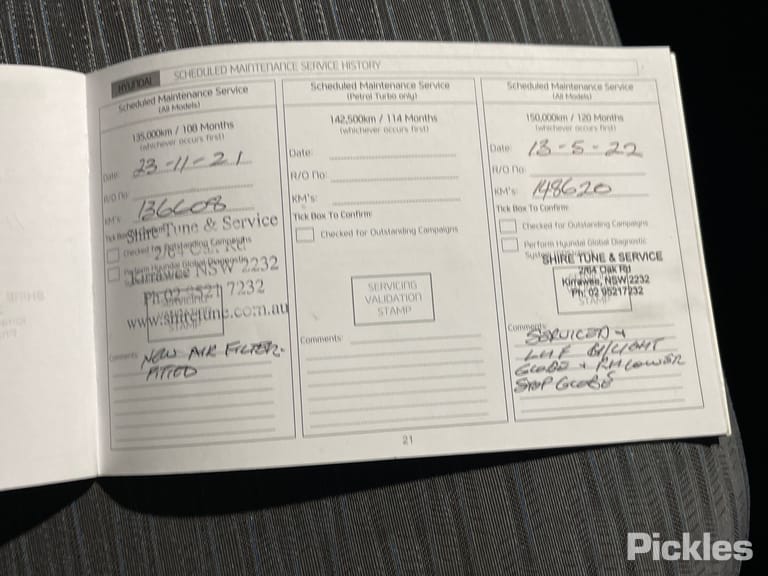 HYUNDAI SCHEDULED MAINTENANCE SERVICE HISTORY
Scheduled Maintenance Service
(All Models)
135,000km / 108 Months
(whichever occurs first)
Date: 23-11-21
R/O no:
KM's: 136608
Tick Box To Confirm:
Shire Tune & Service
Checked for Outstanding Campaigns
2/64 Oak Rd
Perform Hyundai Global Diagnostic
Kirrawee NSW 2232
Ph 02 9521 7232
SERVICING
www.shiretune.com.au
STAMP
Comments:
NEW AIR FILTER.
FITTED
Scheduled Maintenance Service
(Petrol Turbo only)
142,500km / 114 Months
(whichever occurs first)
Date:
R/O No:
KM's:
Tick Box To Confirm:
Checked for Outstanding Campaigns
SERVICING
VALIDATION
STAMP
Comments:
Scheduled Maintenance Service
(All Models)
150,000km / 120 Months
(whichever occurs first)
Date: 13-5-22
R/O No:
KM's: 148620
Tick Box To Confirm:
Checked for Outstanding Campaigns
Perform Hyundai Global Diagnostic
System
SHIRE TUNE & SERVICE
2/64 Oak Rd
Kirrawee, NSW 2232
Ph: 02 95217232
STAMP
Comments:
SERVICED +
LHF
GLOBE + RH LOWER
STOP GLOBE
21
Pickles